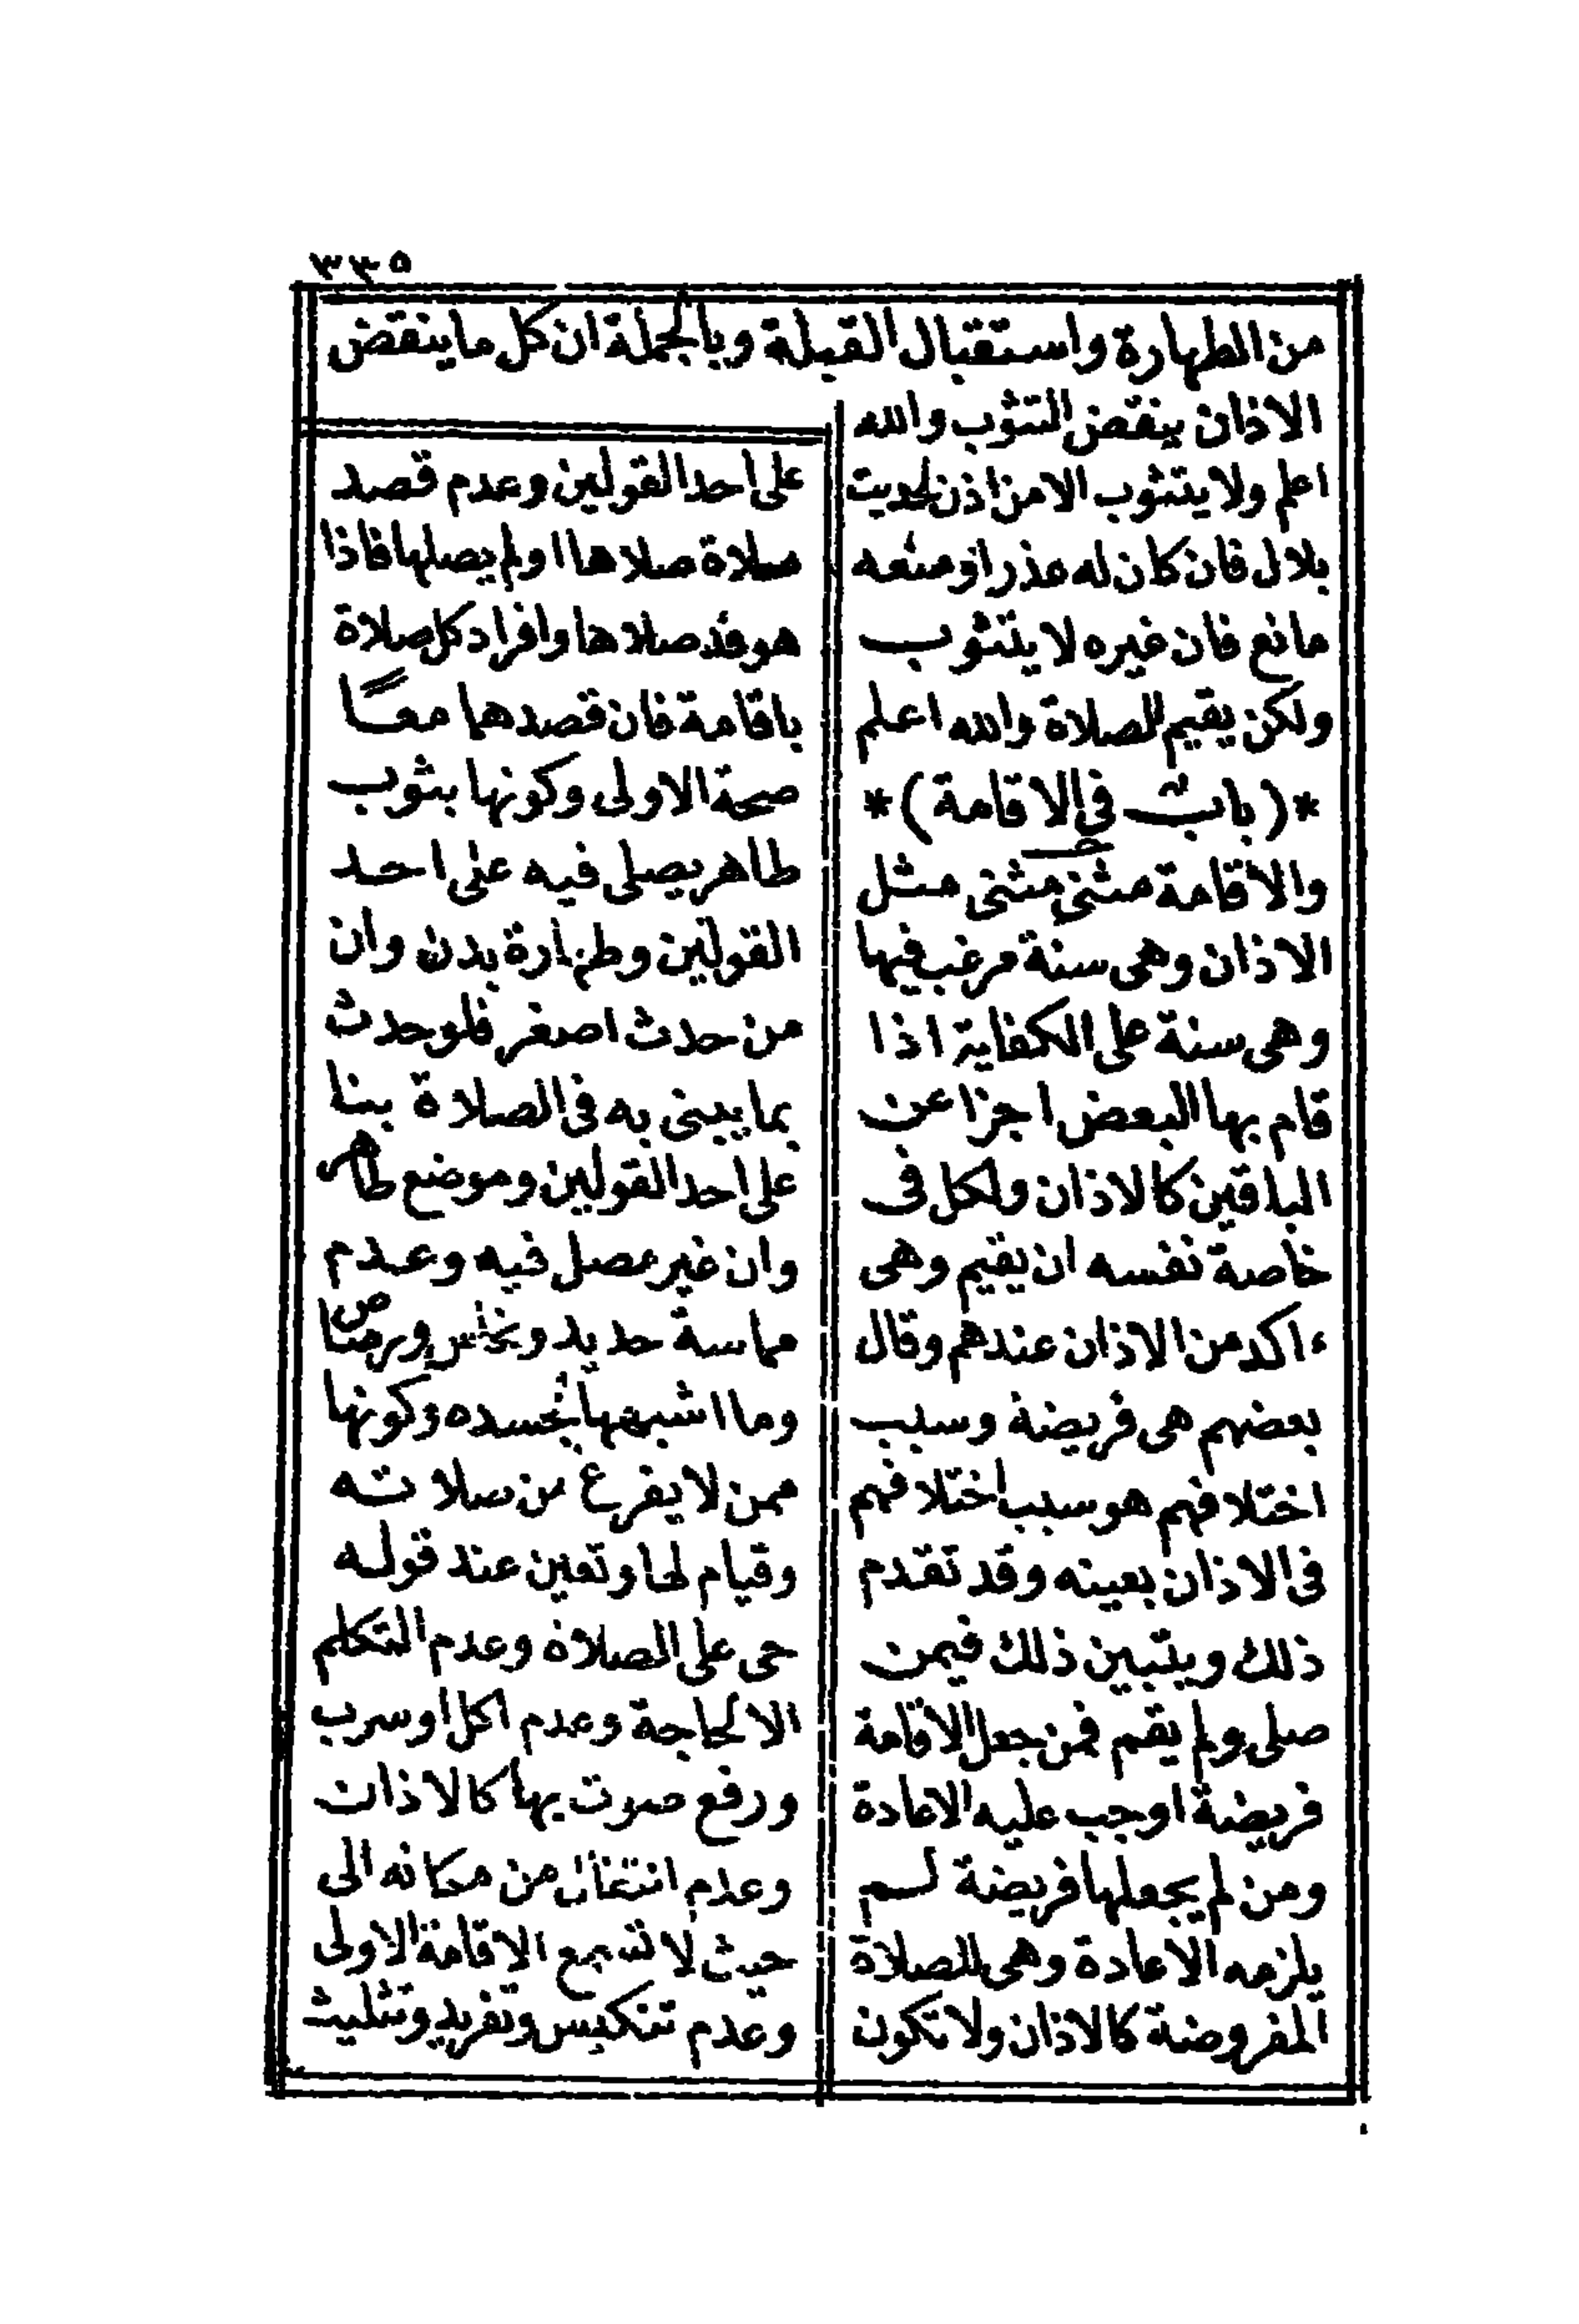 ٣٣٥
من الطهارة واستقبال القبلة وبالجملة ان كل ما ينقض
الاذان ينقض التثوب والله
اعلم ولا يتثوب الا من اذن لحديث
بلال فان كان له عذر او منعه
مانع فان غيره لا يتثوب
ولكن يقيم للصلاة والله اعلم
*(باب في الاقامة)*
والاقامة مثنى مثنى مثل
الاذان وهي سنة مرغب فيها
وهي سنة على الكفاية اذا
قام بها البعض اجزا عن
الباقين كالاذان ولكل في
خاصة نفسه ان يقيم وهي
ءاكد من الاذان عندهم وقال
بعضهم هي فريضة وسبب
اختلافهم هو سبب اختلافهم
في الاذان بعينه وقد تقدم
ذلك ويتبين ذلك فيمن
صلى ولم يقم فمن جعل الاقامة
فريضة اوجب عليه الاعادة
ومن لم يجعلها فريضة لم
يلزمه الاعادة وهي للصلاة
المفروضة كالاذان ولا تكون
على احد القولين وعدم قصد
صلاة صلاها او لم يصلها فاذا
هو قد صلاها وافراد كل صلاة
باقامة فان قصدهما معًا
صحة الاولى وكونها بثوب
طاهر يصلى فيه على احد
القولين وطهارة بدن وان
من حدث اصغر فلو حدث
بما يبنى به في الصلاة بنا
على احد القولين وموضع طاهر
وان غير مصل فيه وعدم
مماسة حديد ونحاس ورصاص
وما اشبهها بجسده وكونها
ممن لا يفرغ من سلاته
وقيام لها وتعين عند قوله
حى على الصلاة وعدم التكلم
الا لحاجة وعدم اكل او سرب
ورفع صوت بها كالاذان
وعدم انتقال من مكانه الى
حيث لا تسمع الاقامة الاولى
وعدم تنكيس وتفريد وتثليث